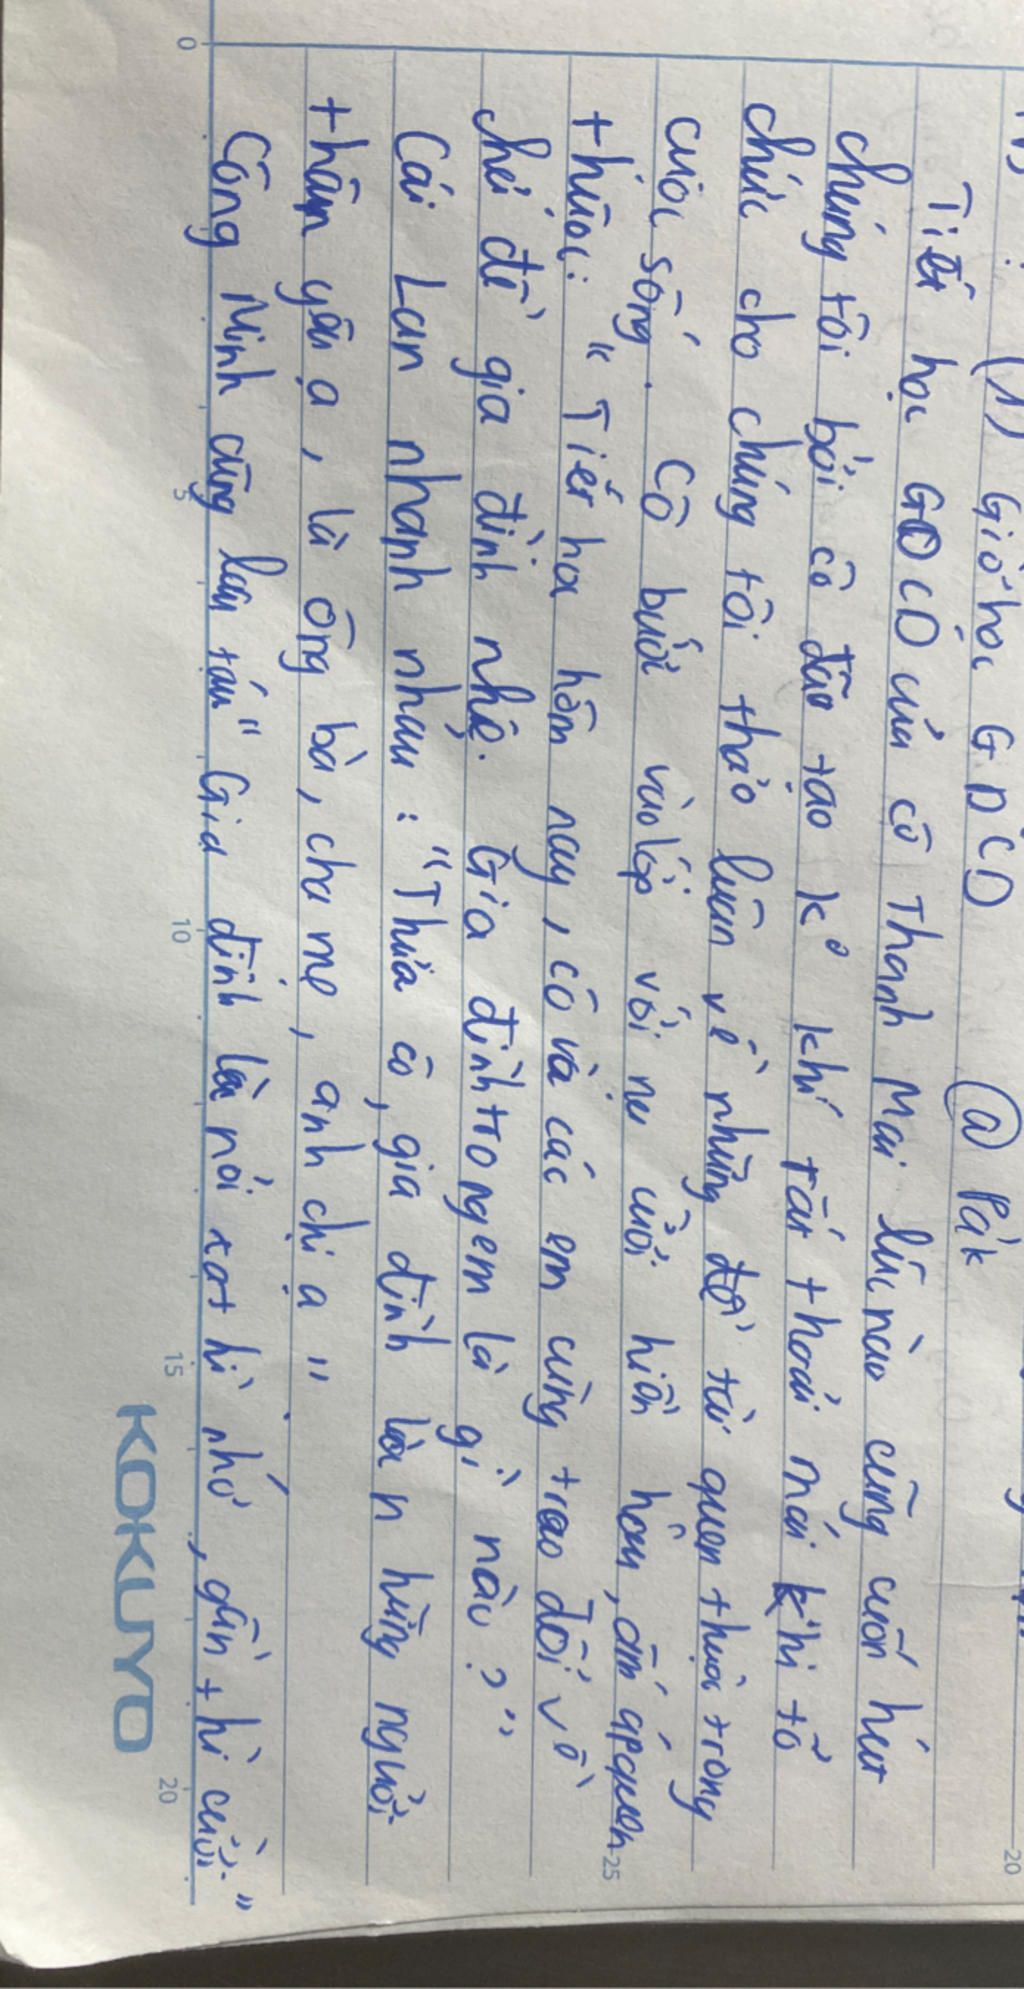 (1) Giờ học GDCD @ Pák
Tiết học GDCD của cô Thanh Mai lúc nào cũng cuốn hút
chúng tôi bởi cô đào tạo k° khí rất thoải mái khi tổ
chức cho chúng tôi thảo luận về những đề từ quen thuộc trong
cuộc sống. Cô bước vào lớp với nụ cười hiền hậu, ấm áp quen
thuộc: " Tiết học hôm nay, cô và các em cùng trao đổi về
chủ đề gia đình nhé. Gia đình trong em là gì nào? "
Cái Lan nhanh nhảu : "Thưa cô, gia đình là những người
thân yêu ạ, là ông bà, cha mẹ, anh chị ạ "
Công Minh cũng láu táu " Gia đình là nơi xa thì nhớ, gần thì cười. "
0
5
10
15
20
25
20
KOKUYO